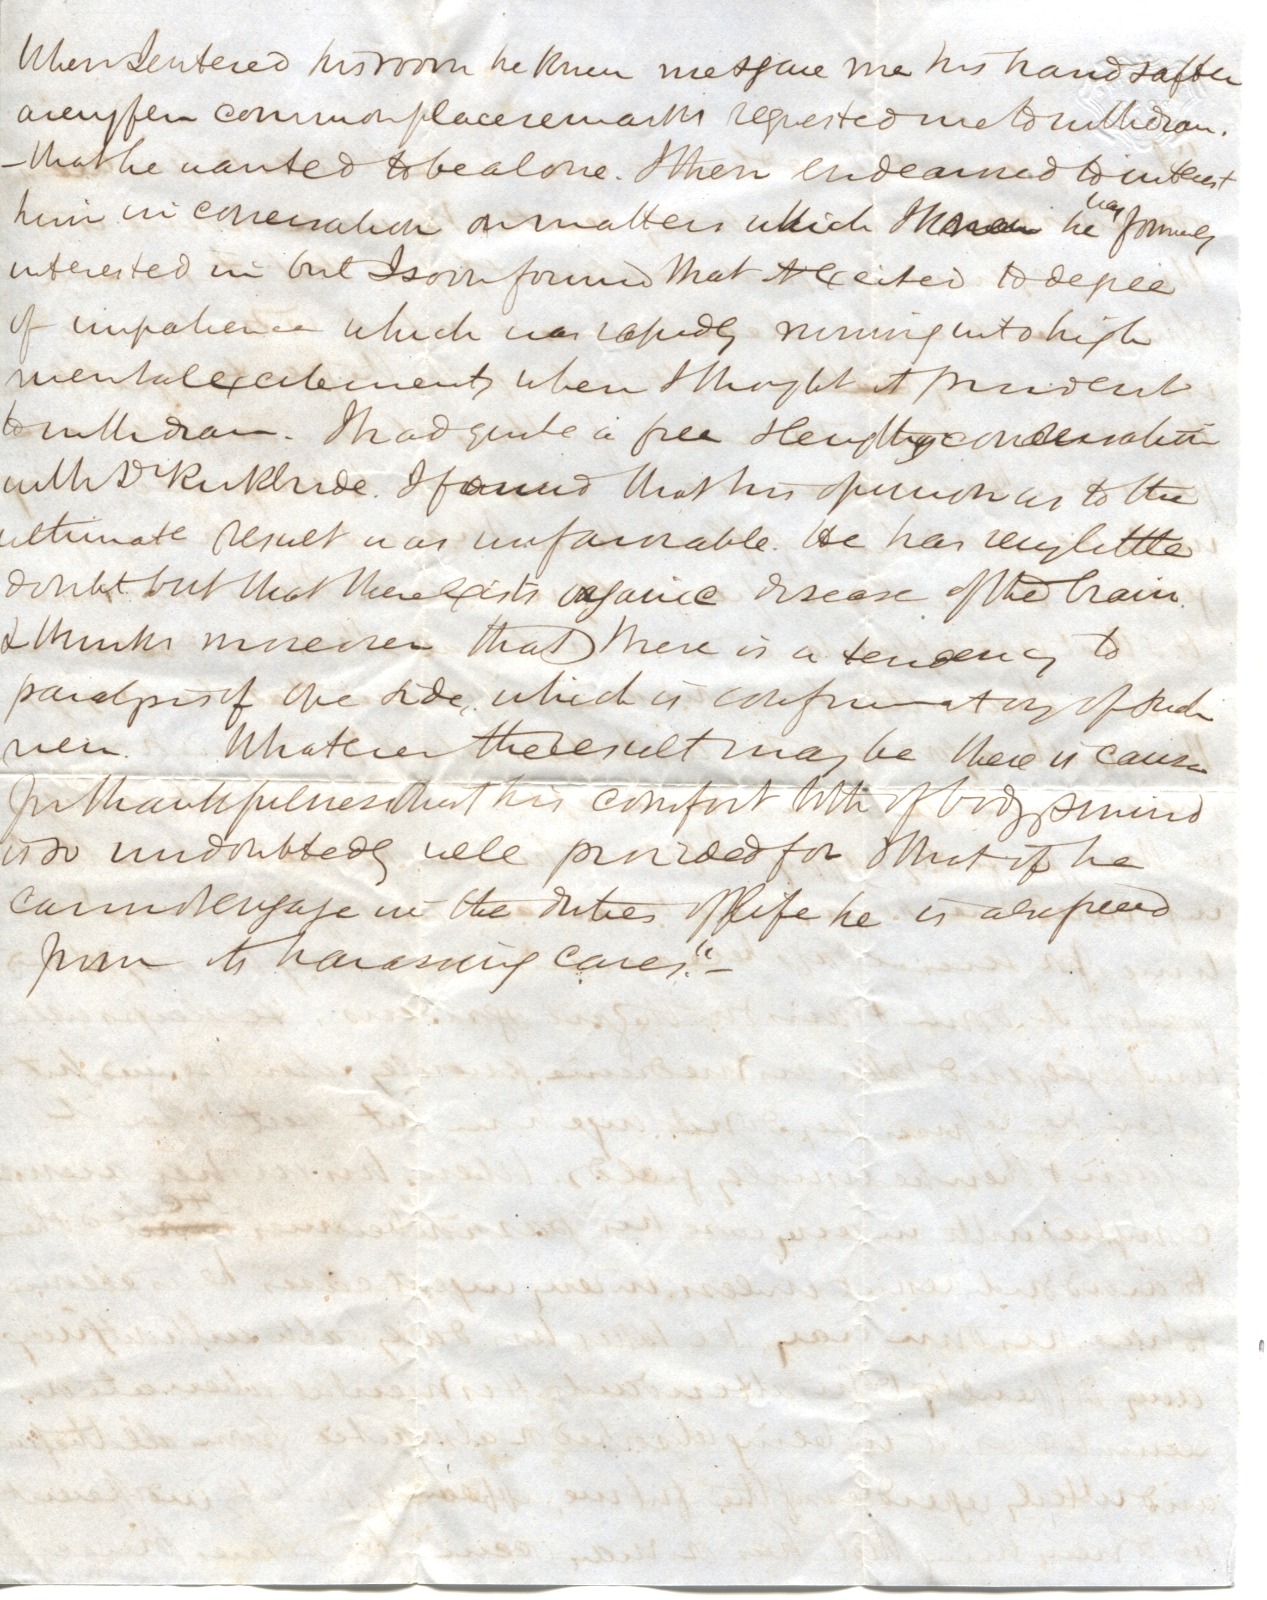 When I entered his room he knew me & gave me his hand & after
a very few commonplace remarks requested me to withdraw.
- that he wanted to be alone. I then endeavored to interest
him in conversation on matters which I knew he was formerly
interested in but I soon found that it excited to degree
of impatience which was rapidly running into high
mental excitement, when I thought it prudent
to withdraw. I had quite a free & lengthy conversation
with Dr Kirkbride. I found that his opinion as to the
ultimate result was unfavorable. He has very little
doubt but that there exists organic disease of the brain
& thinks moreover that there is a tendency to
paralysis of one side, which is confirmatory of such
view. Whatever the result may be there is cause
for thankfulness that his comfort both of body & mind
is so undoubtedly well provided for & that if he
cannot engage in the duties of life he is also freed
from its harassing cares." -